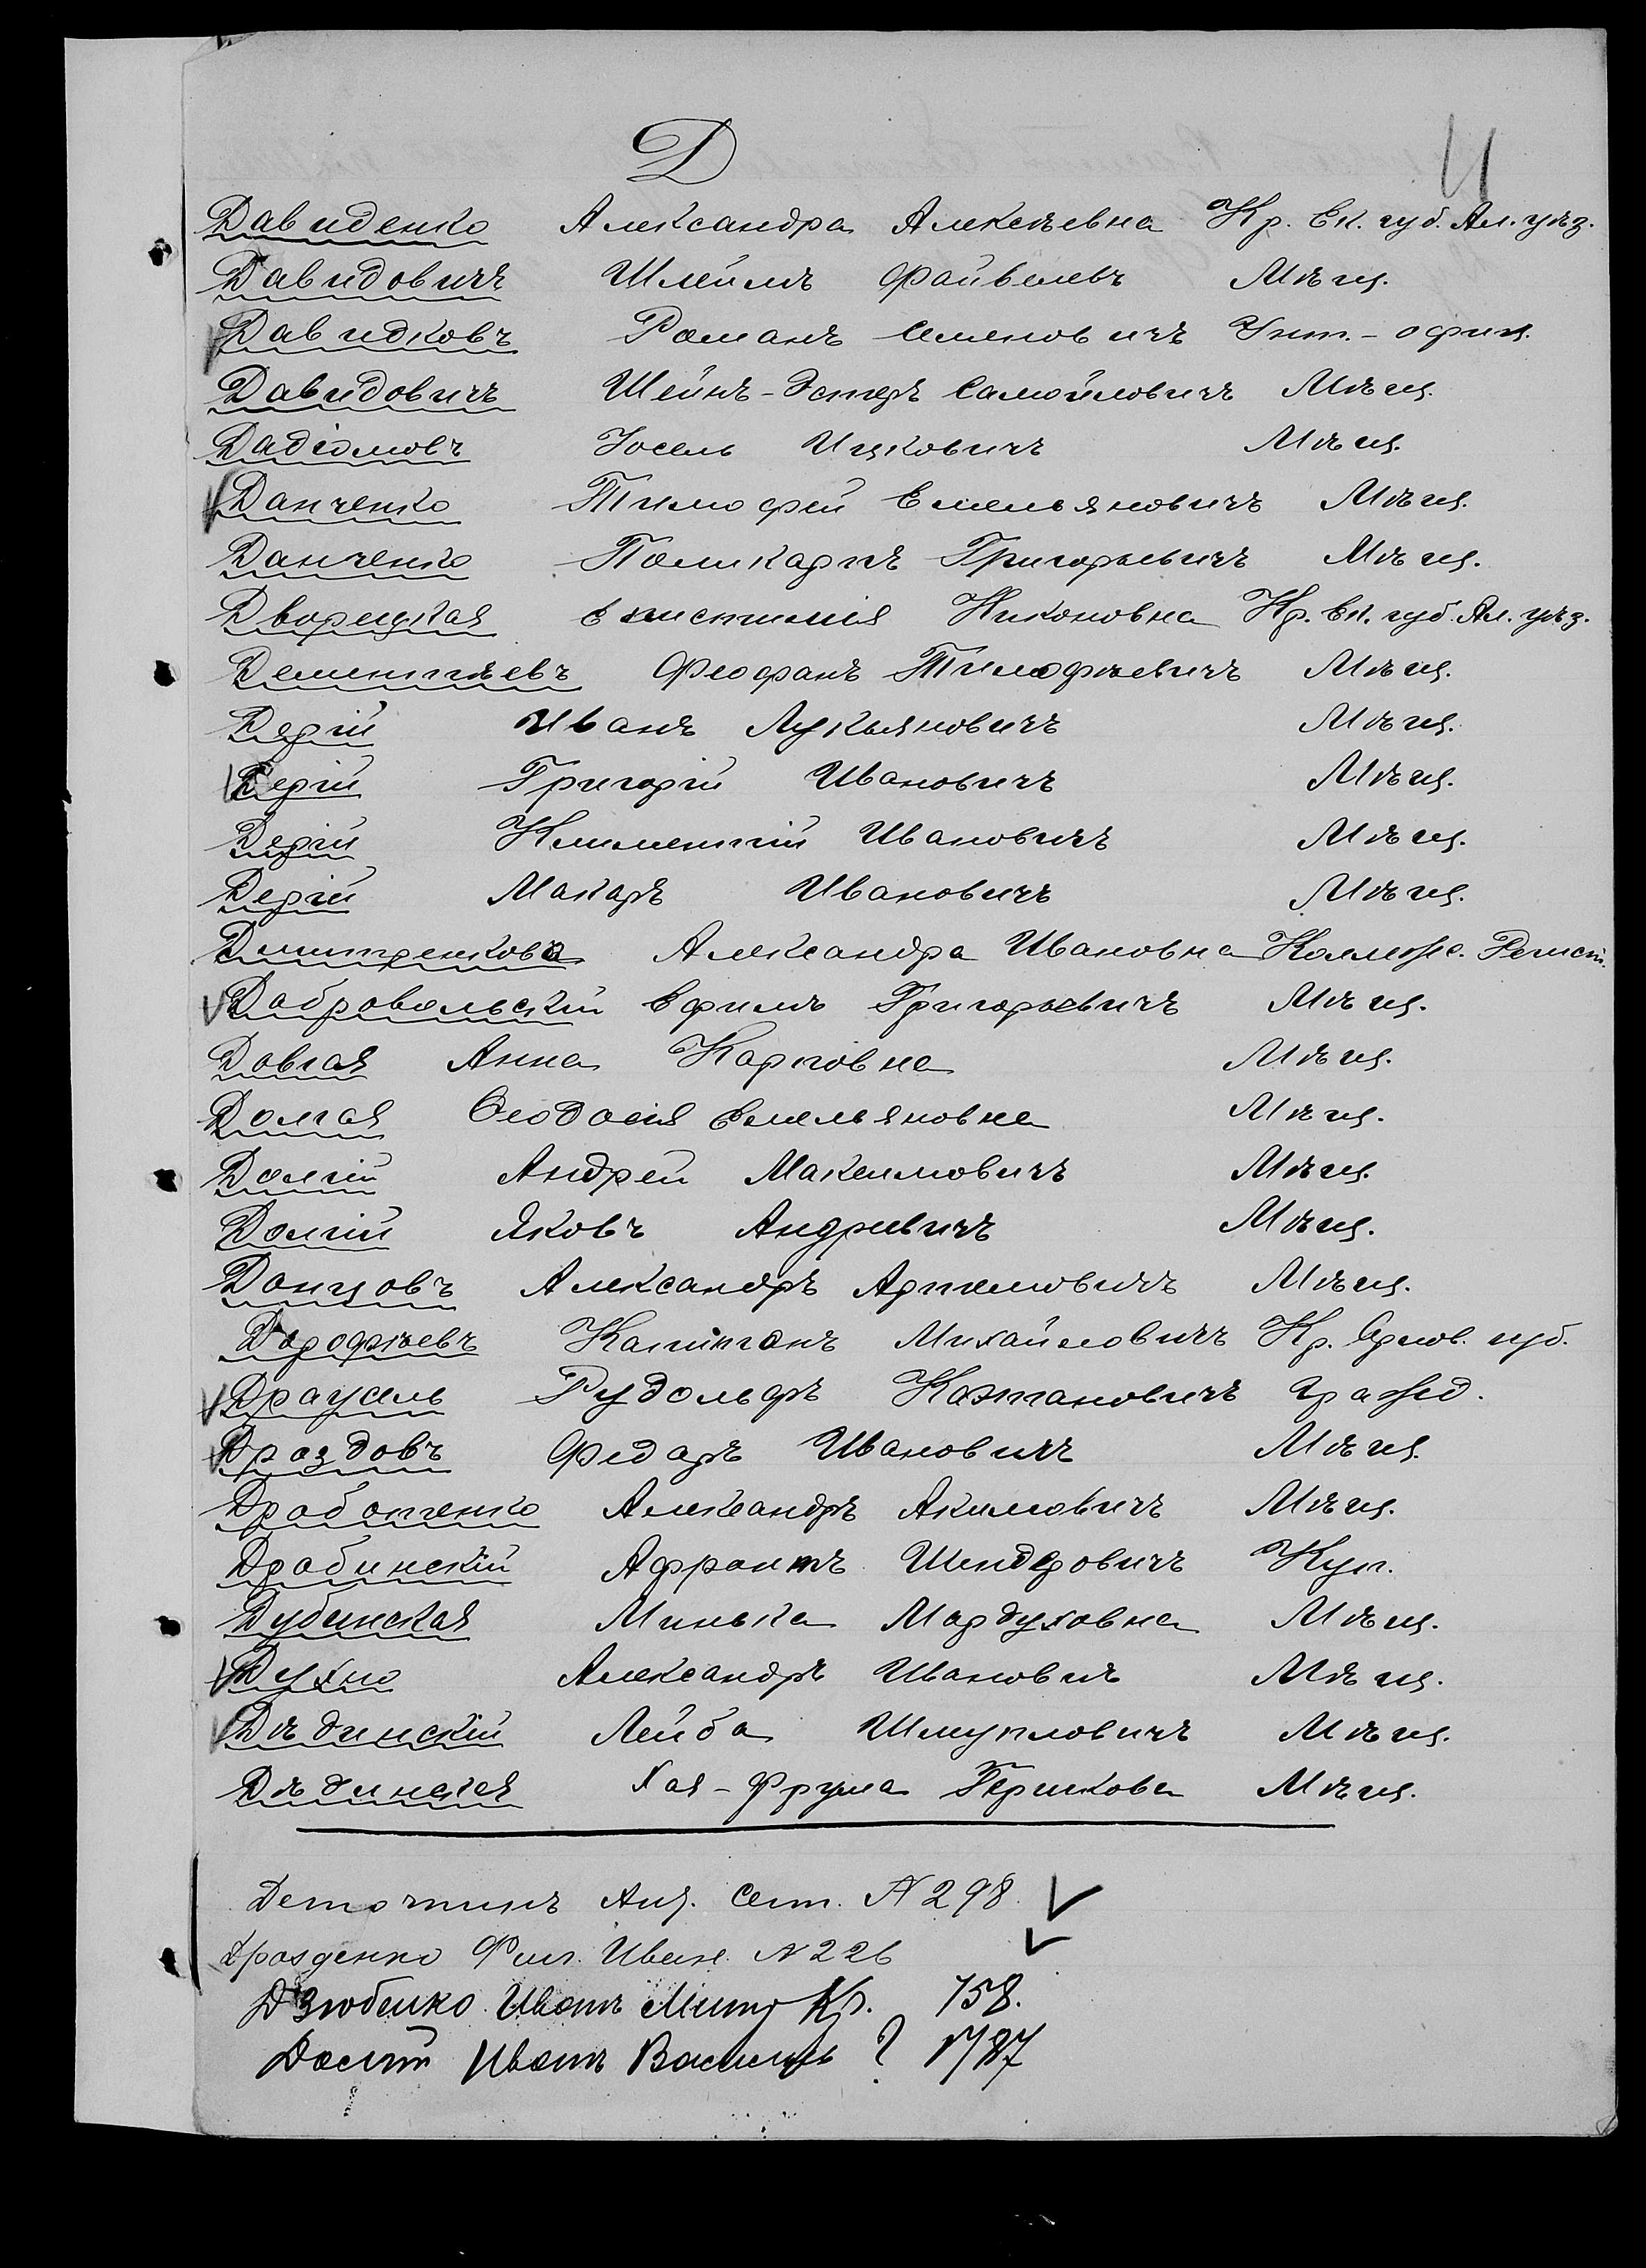 Д
Давиденко Александра Алексѣевна Кр. Ек. губ. Ал. уѣз.
Давидовичъ Шлеймъ Файвелевъ Мѣщ.
Давидковъ Романъ Семеновичъ Унт.-офиц.
Давидовичъ Шейнъ-Эстеръ Самойловичъ Мѣщ.
Дадіомовъ Іосель Ицковичъ Мѣщ.
Данченко Тимофей Емельяновичъ Мѣщ.
Данченко Поликарпъ Григорьевичъ Мѣщ.
Дворецкая Никоновна Кр. Ек. губ. Ал. уѣз.
Дементьевъ Феофанъ Тимофѣевичъ Мѣщ.
Дерій Иванъ Лукьяновичъ Мѣщ.
Дерій Григорій Ивановичъ Мѣщ.
Дерій Климентій Ивановичъ Мѣщ.
Дерій Макаръ Ивановичъ Мѣщ.
Дмитренкова Александра Ивановна Коллежс. Регист.
Добровольскій Ефимъ Григорьевичъ Мѣщ.
Довгая Анна Карповна Мѣщ.
Долгая Ѳеодосія Емельяновна Мѣщ.
Долгій Андрей Максимовичъ Мѣщ.
Долгій Яковъ Андреевичъ Мѣщ.
Донцовъ Александръ Артемовичъ Мѣщ.
Дорофѣевъ Капитонъ Михайловичъ Кр. Орлов. губ.
Драусель Рудольфъ Каэтановичъ Гражд.
Дроздовъ Федоръ Ивановичъ Мѣщ.
Дроботченко Александръ Акимовичъ Мѣщ.
Дробинскій Афроимъ Шендеровичъ Куп.
Дубинская Минька Мордуховна Мѣщ.
Духно Александръ Ивановичъ Мѣщ.
Дѣдинскій Лейба Шмуйловичъ Мѣщ.
Дѣдинская Хая-Фрума Гершкова Мѣщ.
Деточкинъ Анд. Сем. N 298
Дрозденко Фил. Иван. N 226
Дзюбенко Иванъ Митр Кр. 758.
Долгій Иванъ Васильев ? 1787